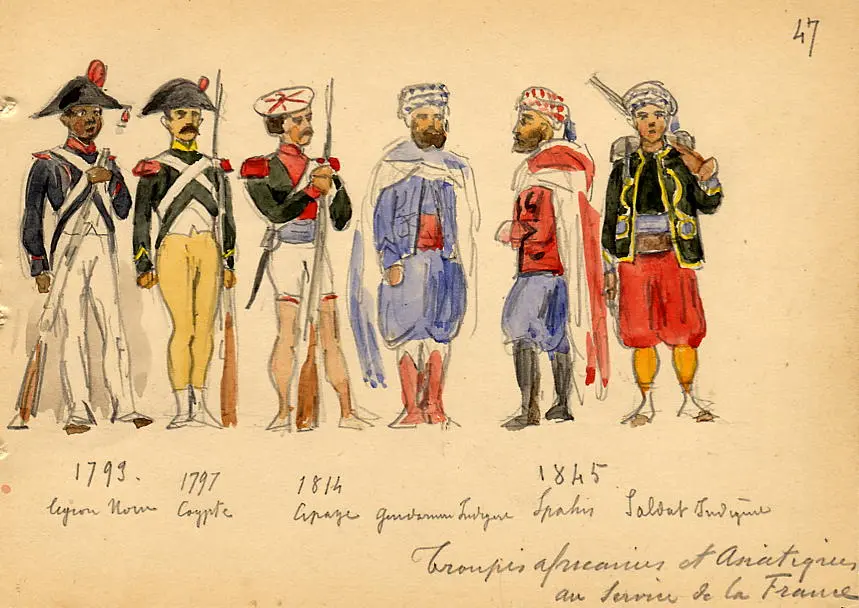 47
1793. 1797 1814 1845
Légion Noire Egypte Cipaye Gendarme Indigène Spahis Soldat Indigène
Troupes africaines et Asiatiques
au Service de la France